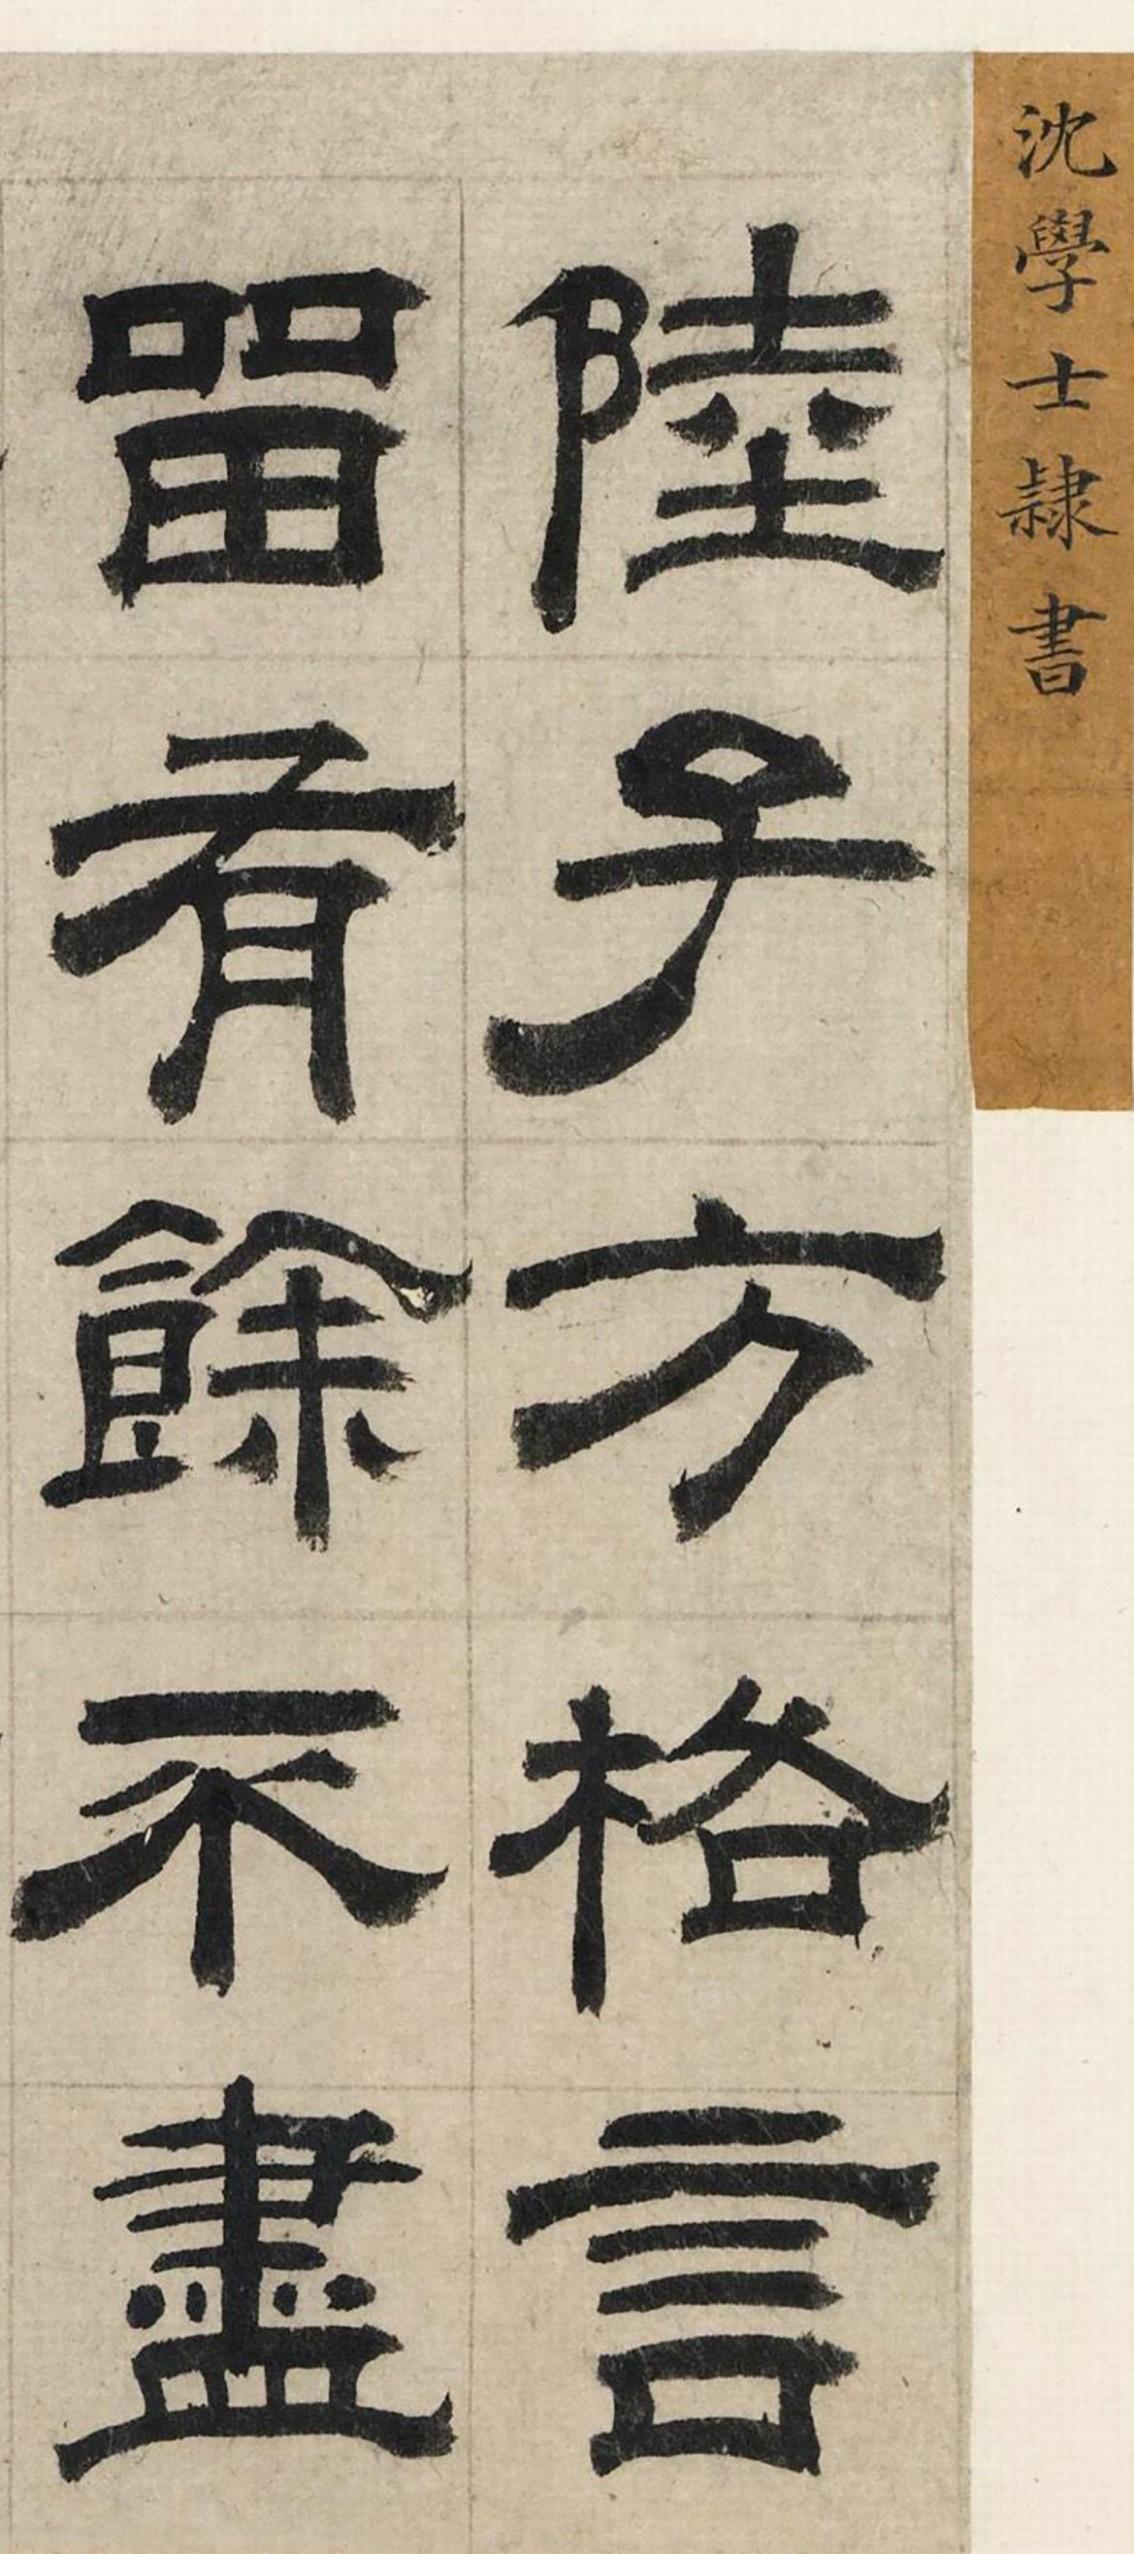 沈學士隸書
陸子方格言
畱有餘不盡